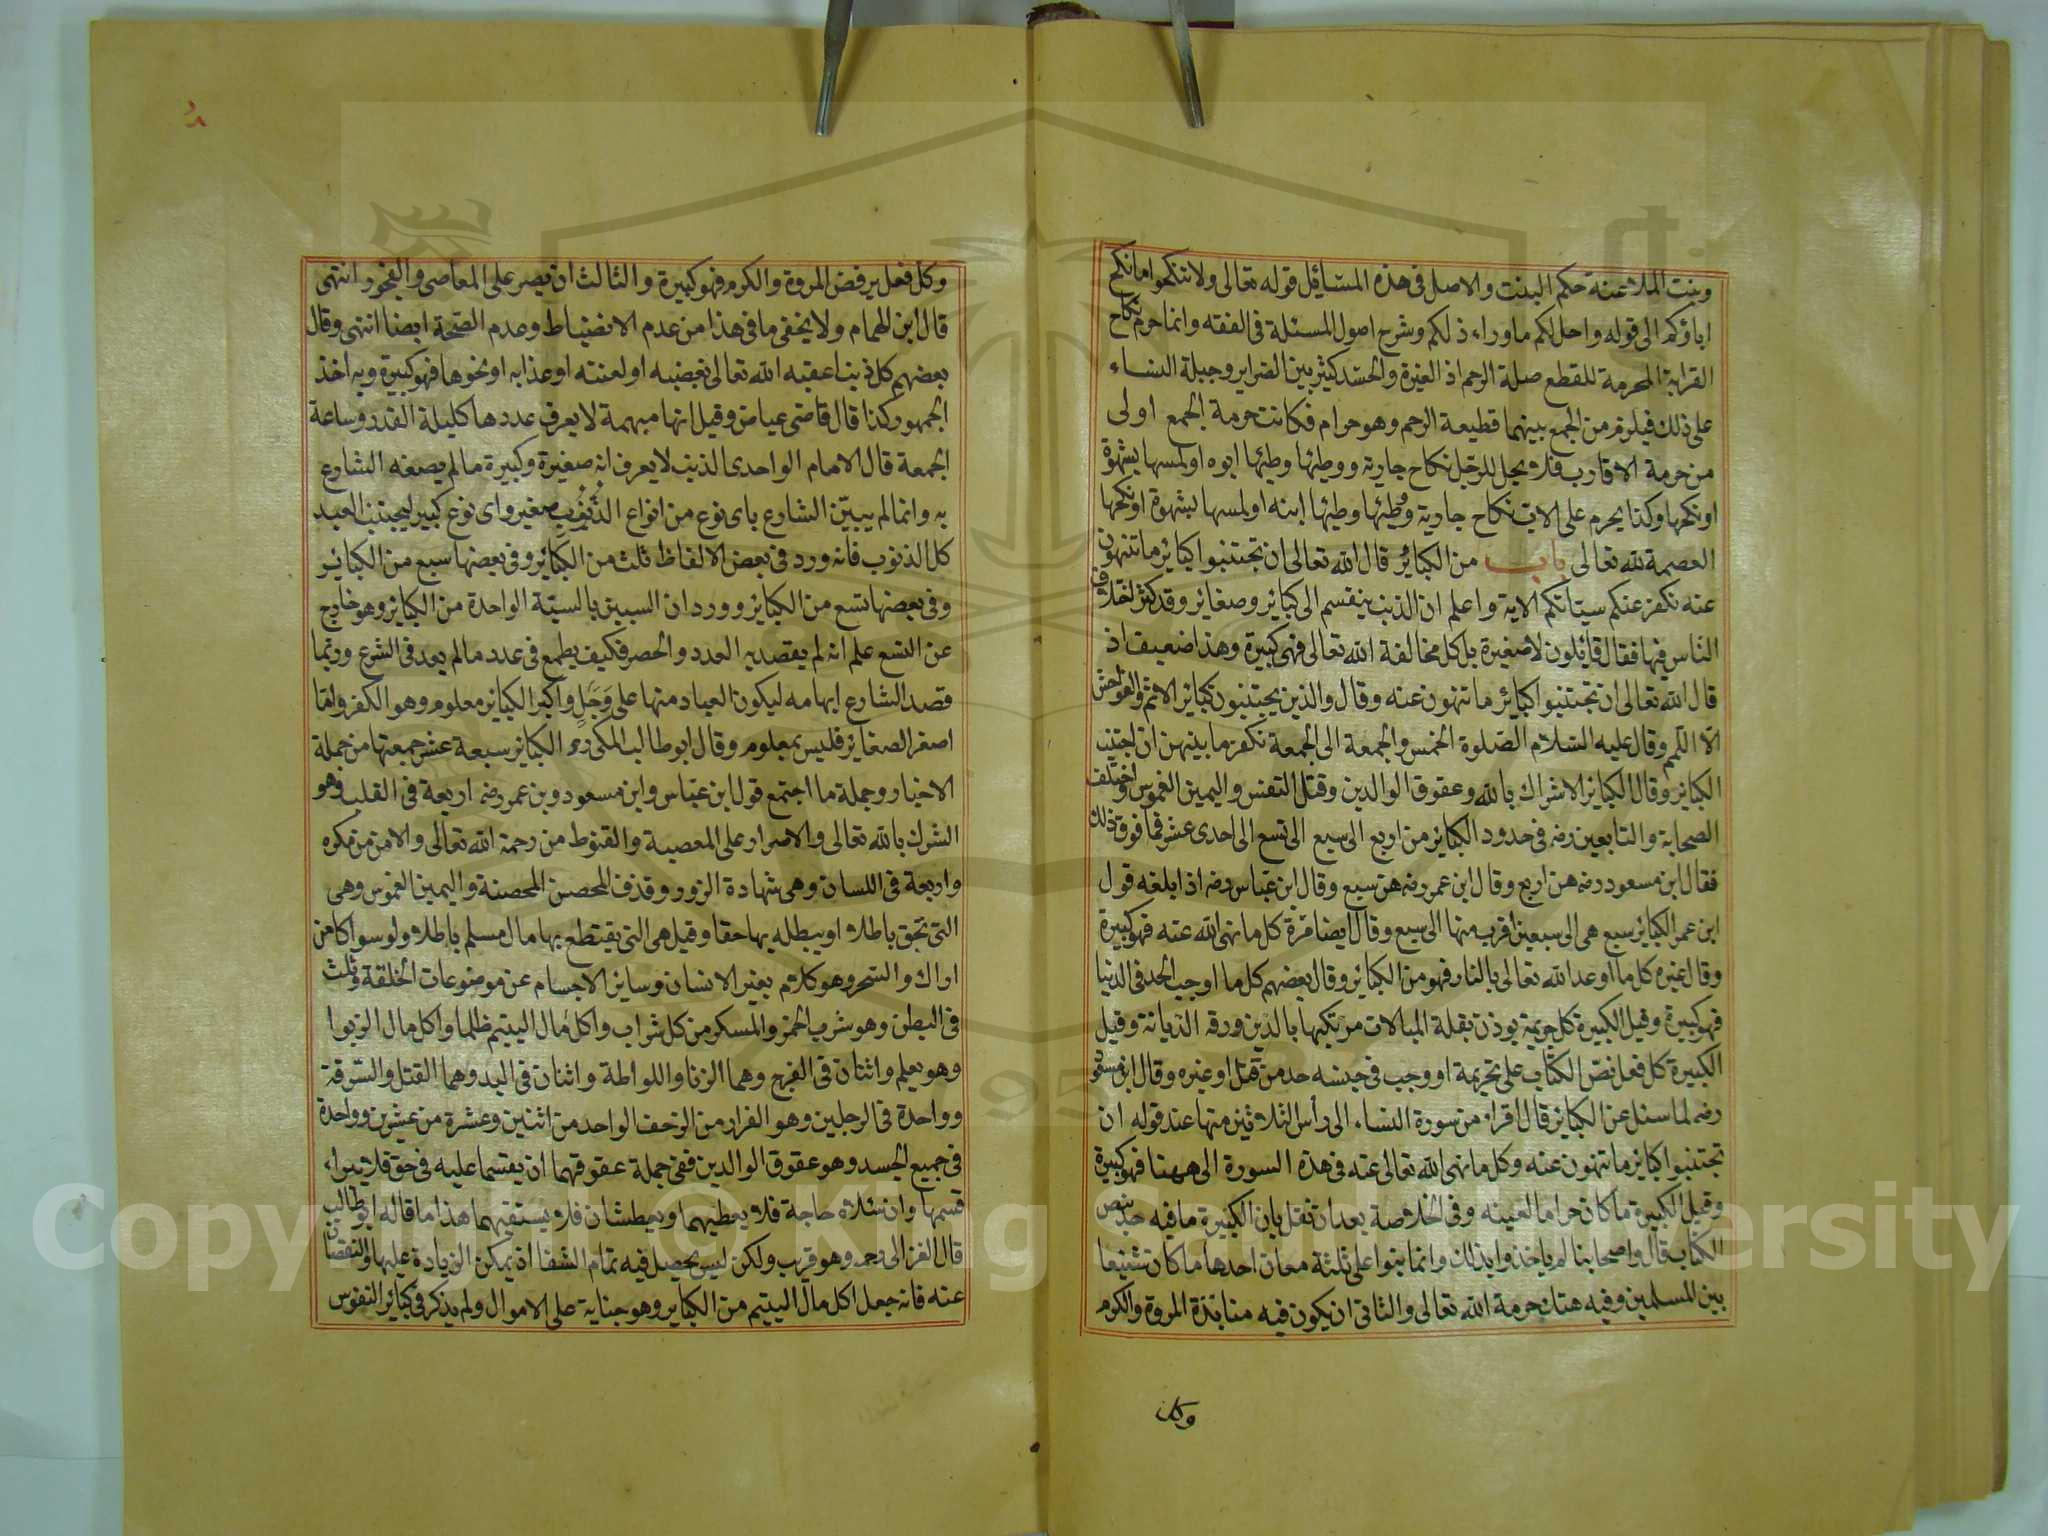 وبنت الملاعنة حكم البنت والاصل فى هذه المسائل قوله تعالى ولا تنكحوا مانكح
اباؤكم الى قوله واحل لكم ما وراء ذلكم وشرح اصول المسئلة فى الفقه وانما حرم نكاح
القرابة المحرمة للقطع صلة الرحم اذ الغيرة والحسد كثير بين الضراير وجبلة النساء
على ذلك فيلزم من الجمع بينهما قطيعة الرحم وهو حرام فكانت حرمة الجمع اولى
من حرمة الاقارب فلا يحل للرجل نكاح جاريته ووطئها وطئها ابوه اولمسها بشهوة
اونكحها وكذا يحرم على الاب نكاح جارية وطئها وطئها ابنه اولمسها بشهوة اونكحها
العصمة لله تعالى باب من الكبائر قال الله تعالى ان تجتنبوا كبائر ما تنهون
عنه نكفر عنكم سيئاتكم الاية واعلم ان الذنب ينقسم الى كبائر وصغائر وقد كثر اختلاف
الناس فيها فقال قائلون لا صغيرة بل كل مخالفة الله تعالى فهى كبيرة وهذا ضعيف اذ
قال الله تعالى ان تجتنبوا كبائر ما تنهون عنه وقال والذين يجتنبون كبائر الاثم والفواحش
الا اللمم وقال عليه السلام الصلوة الخمس والجمعة الى الجمعة تكفر ما بينهن ان اجتنب
الكبائر وقال الكبائر الاشراك بالله وعقوق الوالدين وقتل النفس واليمين الغموس واختلف
الصحابة والتابعين رضه فى حدود الكبائر من اربع الى سبع الى تسع الى احدى عشر فما فوق ذلك
فقال ابن مسعود رضه هن اربع وقال ابن عمر رضه هن سبع وقال ابن عباس رضه اذا بلغه قول
ابن عمر الكبائر سبع هى الى سبعين اقرب منها الى سبع وقال ايضا مرة كل ما نهى الله عنه فهو كبيرة
وقال غيره كل ما اوعد الله تعالى بالنار فهو من الكبائر وقال بعضهم كل ما اوجب الحد فى الدنيا
فهو كبيرة وقيل الكبيرة كل جريمة يوذن بقلة المبالات مرتكبها بالدين ورقه الديانة وقيل
الكبيرة كل فعل نص الكتاب على تحريمة او وجب فى جنسه حد من قتل اوغيره وقال ابن مسعود
رضه لما سئل عن الكبائر قال اقرا من سورة النساء الى رأس الثلاثين منها عند قوله ان
تجتنبوا كبائر ما تنهون عنه وكل ما نهى الله تعالى عنه فى هذه السورة الى ههنا فهو كبيرة
وقيل الكبيرة ما كان حراما لعينه وفى الخلاصة بعد ان نقل بان الكبيرة ما فيه حد بنص
الكتاب قال واصحابنا لم ياخذوا بذلك وانما بنوا على ثلثة معان احدها ما كان شنيعا
بين المسلمين وفيه هتك حرمة الله تعالى والثانى ان يكون فيه منابذة المروة والكرم
وكل
وكل فعل يرفض المروة والكرم فهو كبيرة والثالث ان يصر على المعاصى والفجور انتهى
قال ابن الهمام ولا يخفى ما فى هذا من عدم الانضباط وعدم الصحة ايضا انتهى وقال
بعضهم كل ذنب اعقبه الله تعالى بغضبه او لعنته اوعذابه او نحوها فهو كبيرة وبه اخذ
الجمهور وكذا قال قاضى عياض وقيل انها مبهمة لا يعرف عددها كليلة القدر وساعة
الجمعة قال الامام الواحدى الذنب لا يعرف انه صغيرة وكبيرة ما لم يصفه الشارع
به وانما لم يبين الشارع باى نوع من انواع الذنوب صغير واى نوع كبير ليجتنب العبد
كل الذنوب فانه ورد فى بعض الالفاظ ثلث من الكبائر وفى بعضها سبع من الكبائر
وفى بعضها تسع من الكبائر وورد ان السببين بالسبة الواحدة من الكبائر وهو خارج
عن التسع علم انه لم يقصد به العدد والحصر فكيف يطمع فى عدد ما لم يعد فى الشرع وربما
قصد الشارع ابهامه ليكون العباد منها على وجل واكبر الكبائر معلوم وهو الكفر واما
اصغر الصغائر فليس بمعلوم وقال ابو طالب المكى رح الكبائر سبعة عشر جمعتها من جملة
الاخبار وجملة ما اجتمع قول ابن عباس وابن مسعود وبن عمر رضه اربعة فى القلب وهو
الشرك بالله تعالى والاصرار على المعصية والقنوط من رحمة الله تعالى والامن من مكره
واربعة فى اللسان وهى شهادة الزور وقذف المحصن المحصنة واليمين الغموس وهى
التى تحق باطلا او يبطله بها حقا وقيل هى التى يقتطع بها مال مسلم باطلا ولو سواكا من
اراك والسحر وهو كلام يغير الانسان وساير الاجسام عن موضوعات الخلقة وثلث
فى البطن وهو شرب الخمر والمسكر من كل شراب واكل مال اليتيم ظلما واكل مال الربوا
وهو يعلم واثنان فى الفرج وهما الزنا واللواطة واثنان فى اليد وهما القتل والسرقة
وواحدة فى الرجلين وهو الفرار من الزحف الواحد من اثنين وعشرة من عشرين وواحدة
فى جميع الجسد وهو عقوق الوالدين ففى جملة عقوقهما ان يقسما عليه فى حق فلا يبراء
قسمها وان سئلاه حاجة فلا يعطيهما ويعطشان فلا يستقيهما هذا ما قاله ابو طالب
قال الغزالى رحمه وهو قريب ولكن ليس يحصل فيه تمام الشفا اذ يمكن الزيادة عليها والنقصان
عنه فانه جعل اكل مال اليتيم من الكبائر وهو جناية على الاموال ولم يذكر فى كبائر النفوس
Copyright © King Saud University